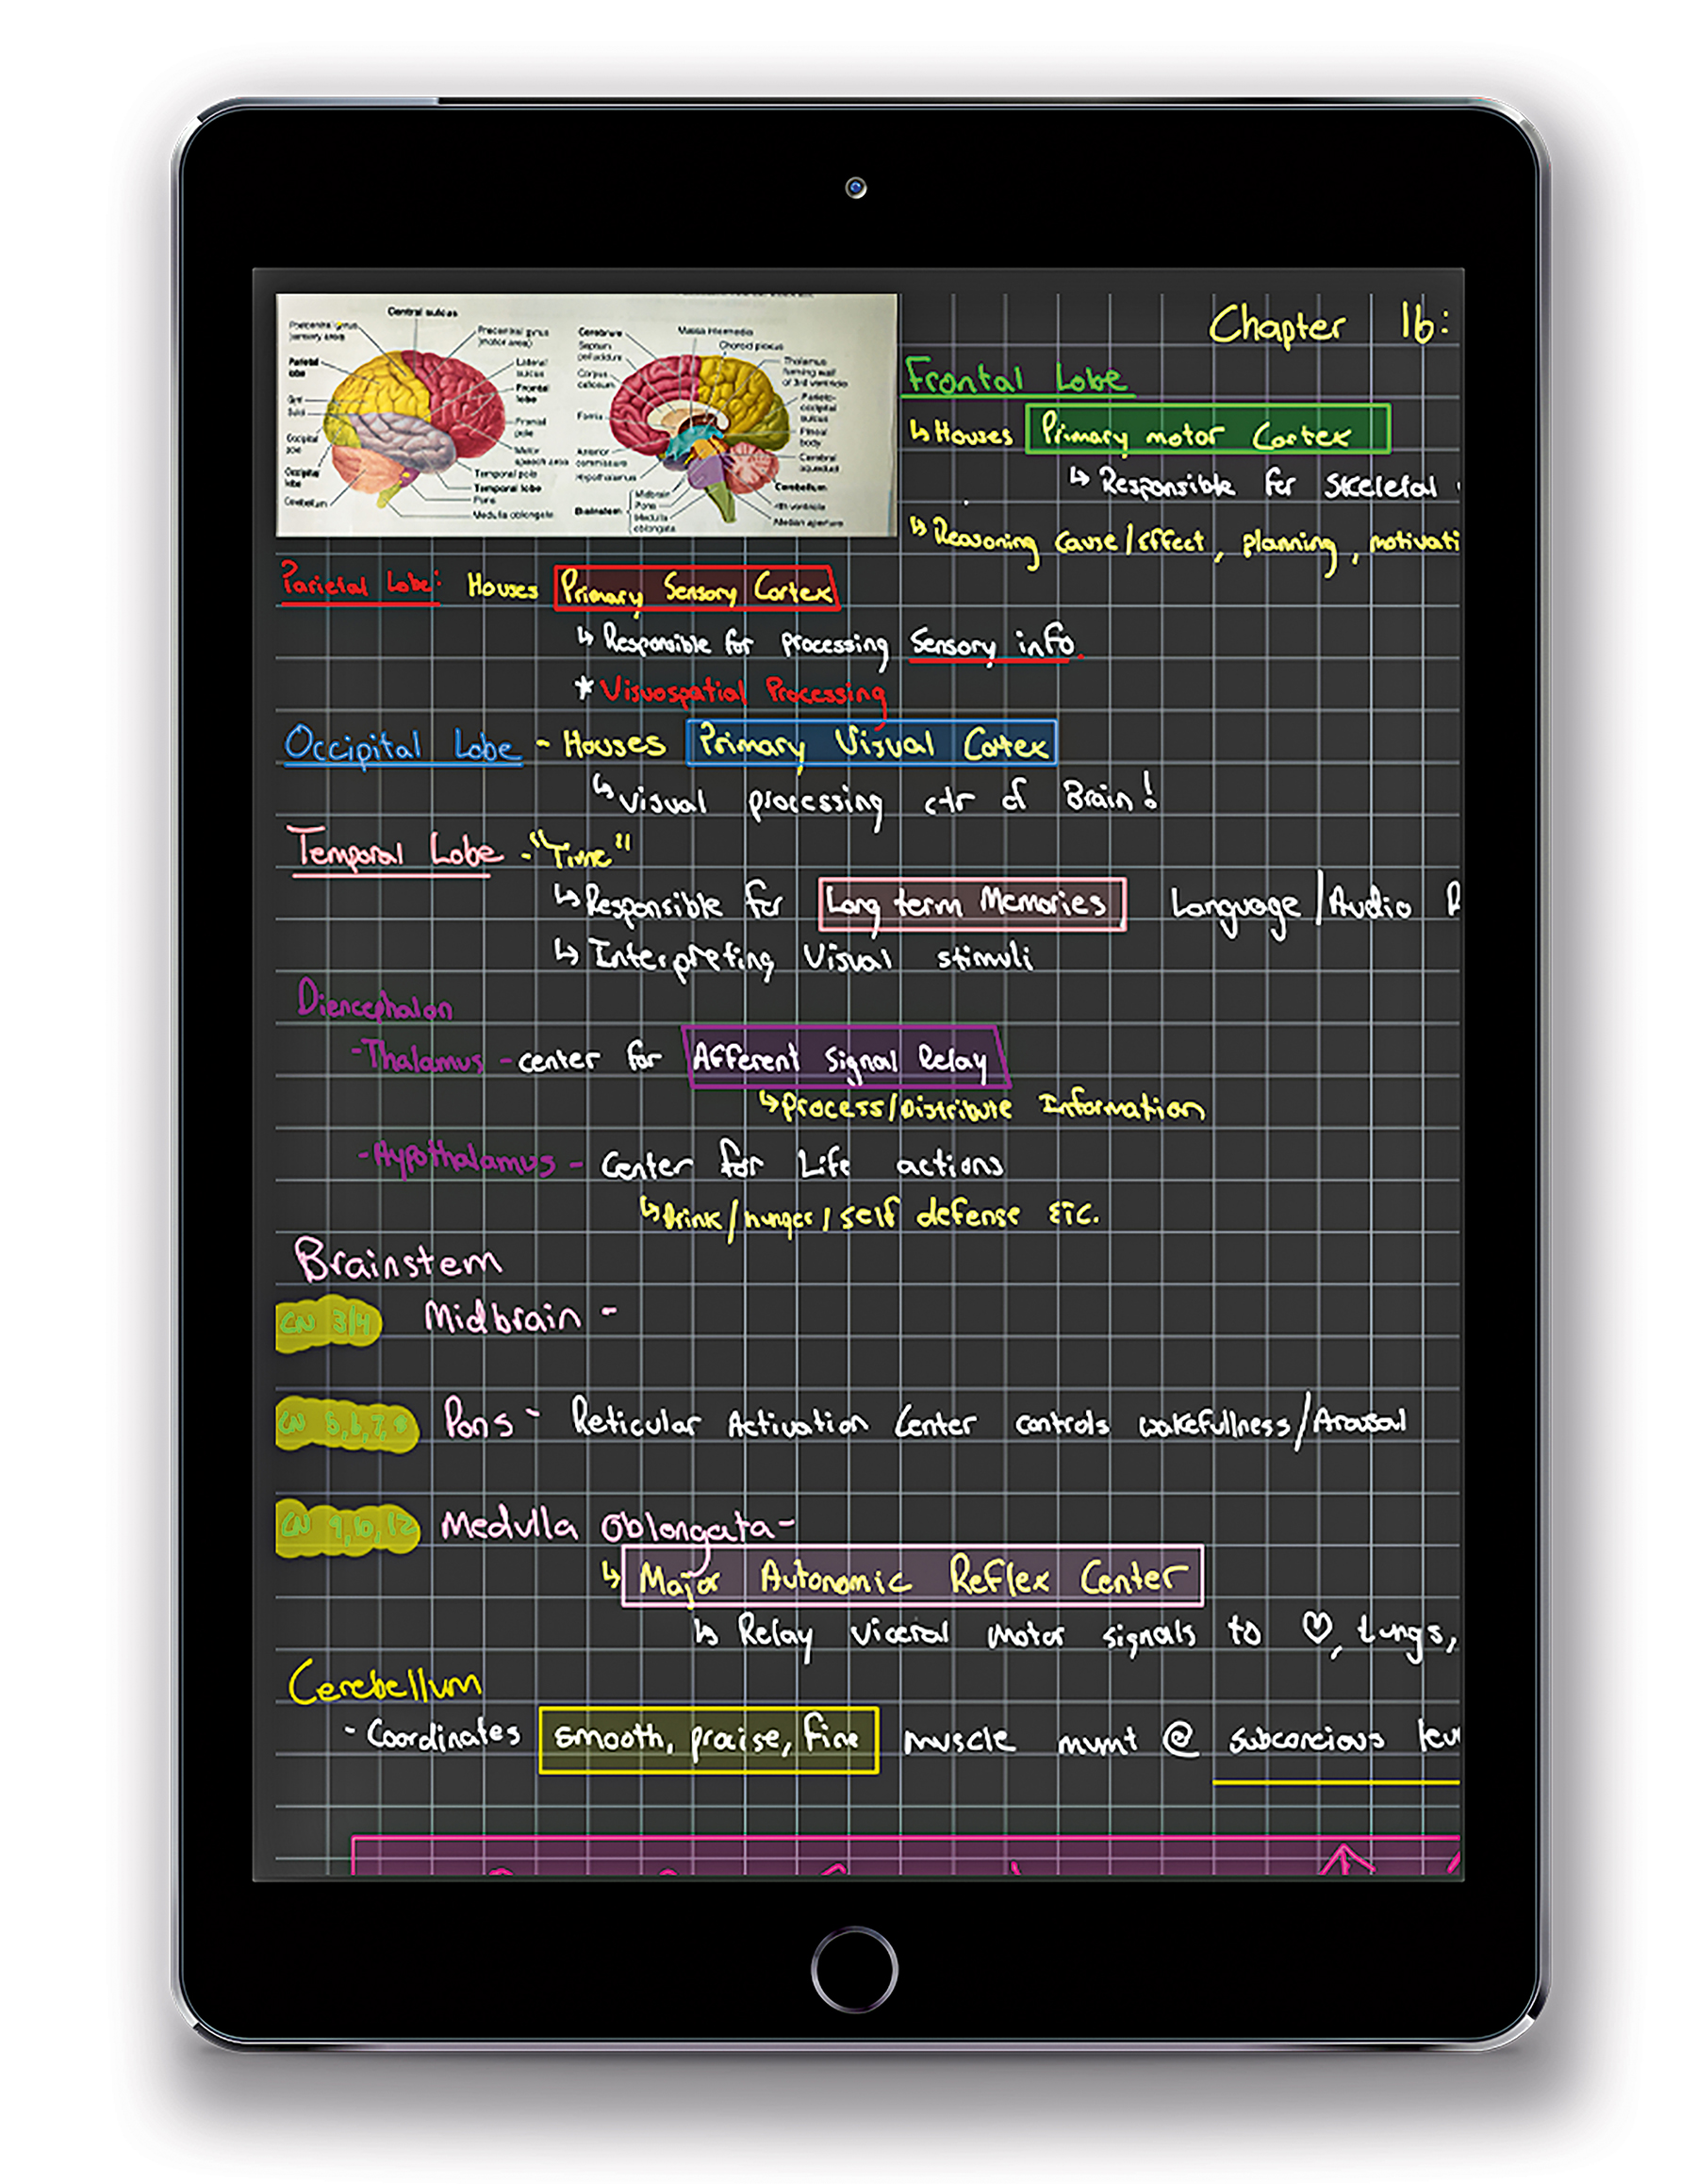 Central sulcus
Postcentral gyrus
(sensory area)
Precentral gyrus
(motor area)
Parietal
lobe
Lateral
sulcus
Frontal
lobe
Gyri
Sulci
Frontal
pole
Occipital
pole
Motor
speech area
Occipital
lobe
Temporal pole
Temporal lobe
Pons
Cerebellum
Medulla oblongata
Cerebrum
Massa intermedia
Septum
pellucidum
Choroid plexus
Corpus
callosum
Thalamus
forming wall
of 3rd ventricle
Parieto-
occipital
sulcus
Fornix
Pineal
body
Anterior
commissure
Cerebral
aqueduct
Hypothalamus
Cerebellum
Brainstem
Midbrain
Pons
Medulla
oblongata
4th ventricle
Median aperture
Chapter 16:
Frontal Lobe
↳ Houses Primary motor Cortex
↳ Responsible for Skeletal
↳ Reasoning cause/effect, planning, motivati
Parietal Lobe: Houses Primary Sensory Cortex
↳ Responsible for processing Sensory info.
* Visuospatial Processing
Occipital Lobe - Houses Primary Visual Cortex
↳ visual processing ctr of Brain!
Temporal Lobe - "Time"
↳ Responsible for Long term Memories, Language/Audio
↳ Interpreting Visual stimuli
Diencephalon
-Thalamus - center for Afferent Signal Relay
↳ process/Distribute Information
-Hypothalamus - Center for Life actions
↳ Drink/hunger/self defense ETC.
Brainstem
CN 3/4 Midbrain -
CN 5,6,7,8 Pons - Reticular Activation Center controls wakefullness/Arousal
CN 9,10,12 Medulla Oblongata -
↳ Major Autonomic Reflex Center
↳ Relay viceral motor signals to ♡, Lungs,
Cerebellum
- Coordinates smooth, praise, fine muscle mvmt @ subconcious lev